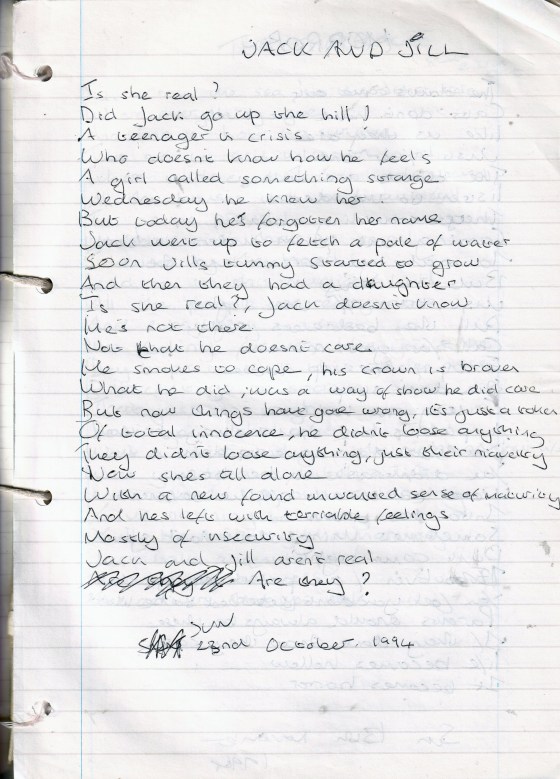 JACK AND JILL
Is she real ?
Did Jack go up the hill )
A teenager in crisis
Who doesnt know how he feels
A girl called something strange
Wednesday he knew her
But today he's forgotten her name
Jack went up to fetch a pale of water
Soon Jills tummy started to grow
And then they had a daughter
Is she real?, Jack doesnt know
He's not there
Not that he doesnt care.
He smokes to cope, his crown is broken
What he did, was a way of show he did care
But now things have gone wrong, it's just a token
Of total innocence, he didn't loose anything
They didn't loose anything, just their naivety
Now shes all alone
With a new found unwanted sense of maturity
And hes left with terriable feelings
Mostly of insecurity
Jack and Jill aren't real
Are they ?
SUN
23nd October, 1994